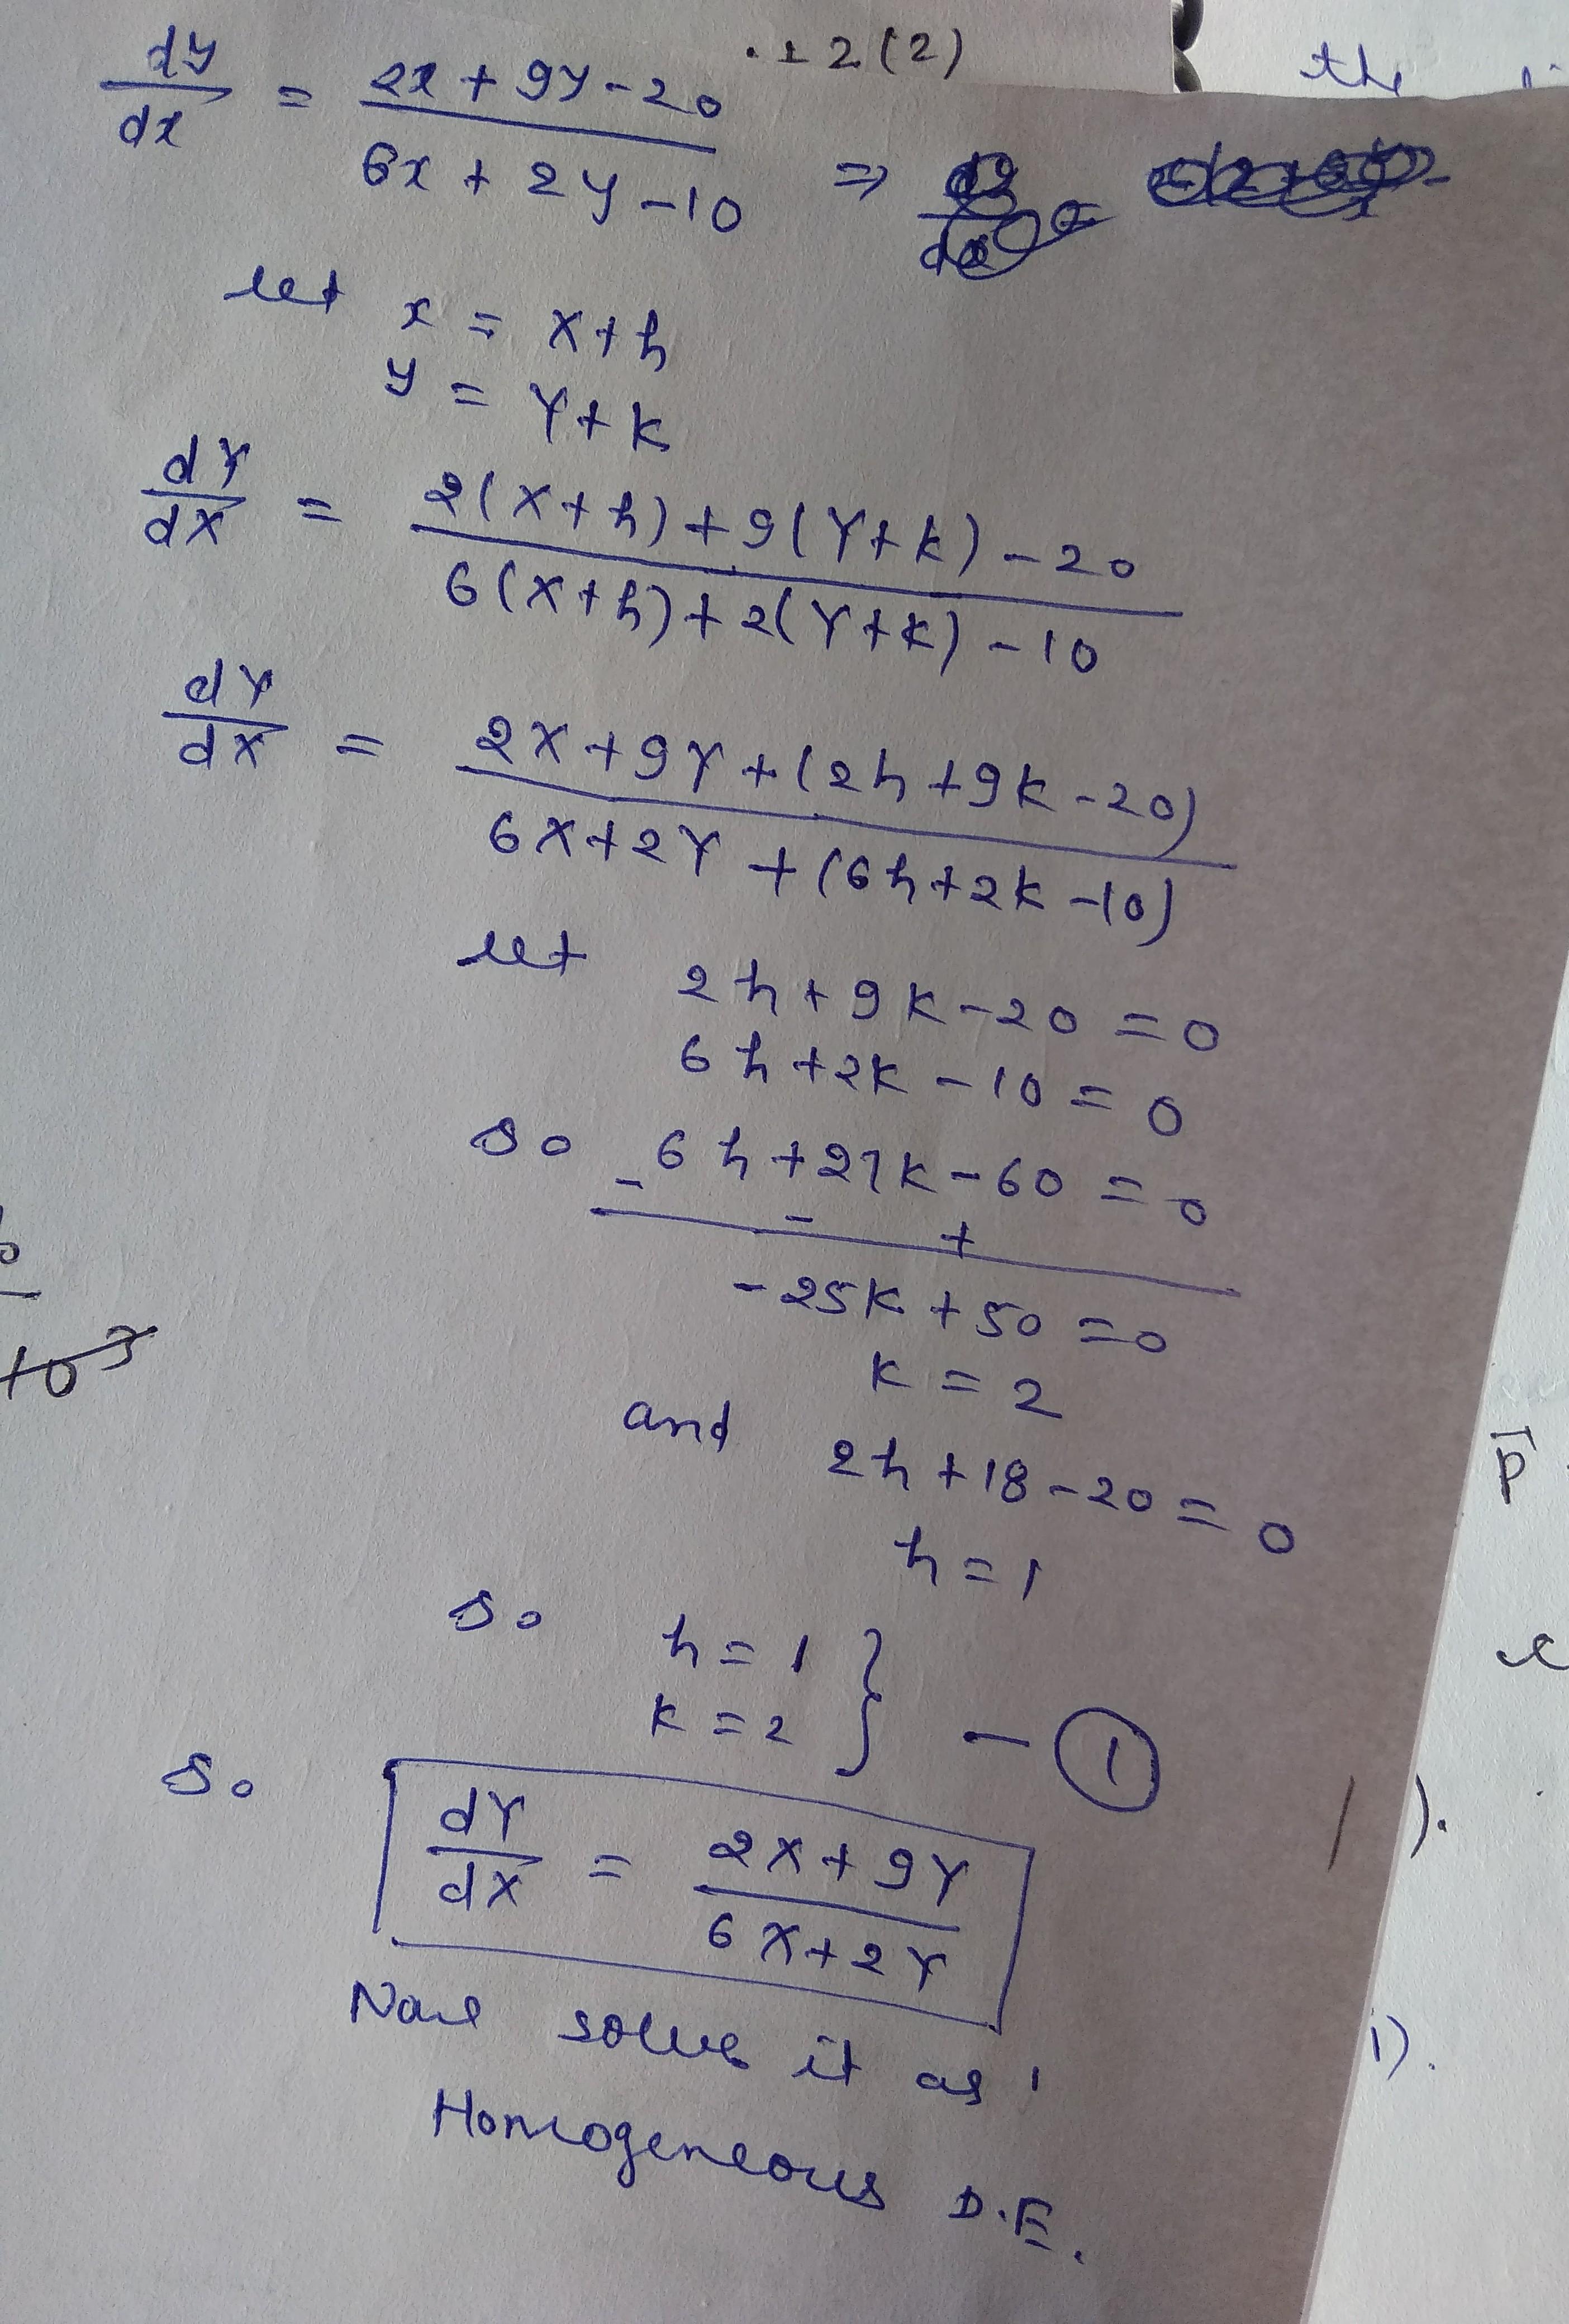 . ± 2(2)
the
dy/dx = (2x + 9y - 20)/(6x + 2y - 10) ⇒
let x = X + h
y = Y + k
dY/dX = (2(X+h) + 9(Y+k) - 20)/(6(X+h) + 2(Y+k) - 10)
dY/dX = (2X + 9Y + (2h + 9k - 20))/(6X + 2Y + (6h + 2k - 10))
let 2h + 9k - 20 = 0
6h + 2k - 10 = 0
so 6h + 27k - 60 = 0
- - +
-25k + 50 = 0
k = 2
and 2h + 18 - 20 = 0
h = 1
so h = 1
k = 2 } - ①
so dY/dX = (2X + 9Y)/(6X + 2Y)
Now solve it as
Homogeneous D.E.
p
).
1).